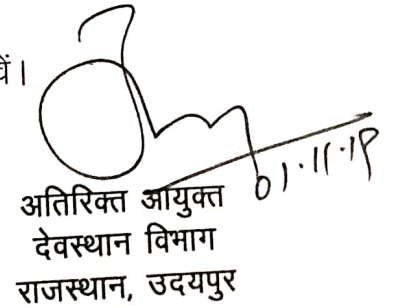 वें।
01.11.19
अतिरिक्त आयुक्त
देवस्थान विभाग
राजस्थान, उदयपुर